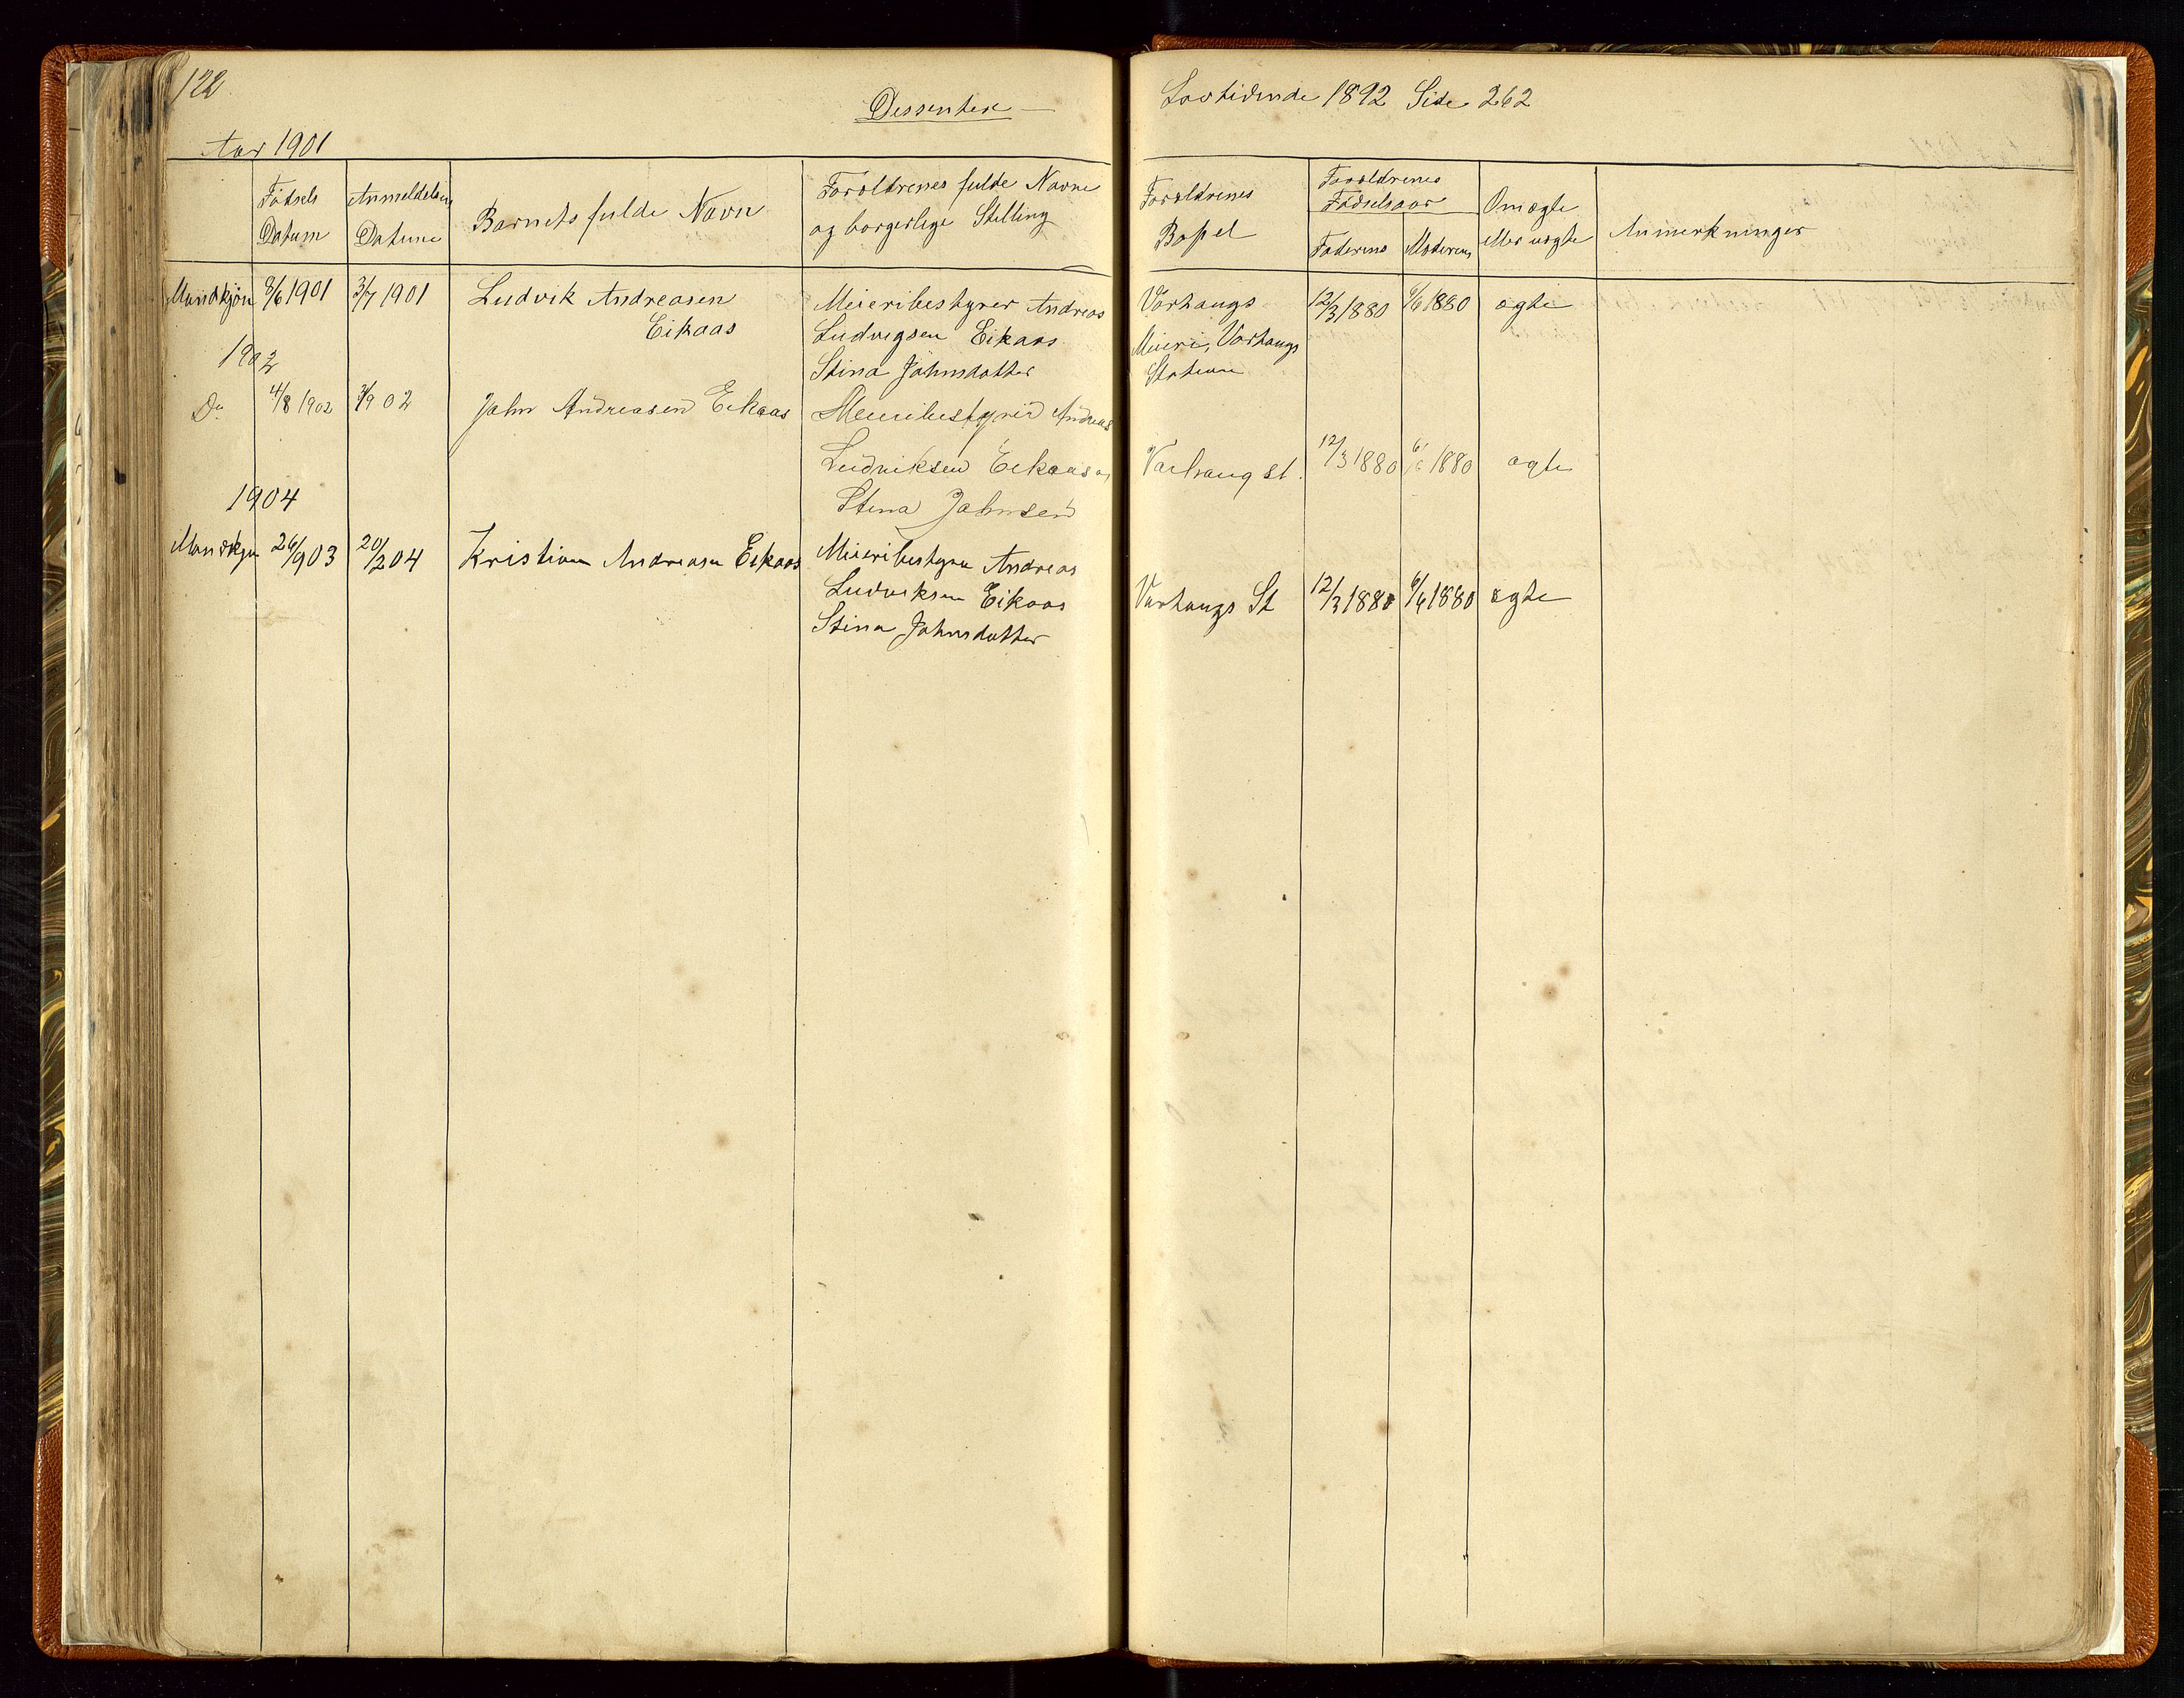 122
Dessentere
Lovtidende 1892 Side 262
Aar 1901
Fødsels Datum
Anmeldelses Datum
Barnets fulde Navn
Forældrenes fulde Navne og borgerlige Stilling
Forældrenes Bopel
Forældrenes Fødselsaar
Faderens
Moderens
Om ægte eller uægte
Anmerkninger
Mandkjøn 8/6 1901 3/7 1901 Ludvik Andreasen Meieribestyrer Andreas Varhaugs 12/3 1880 6/6 1880 ægte
Eikaas Ludvigsen Eikaas Mieri, Varhaugs
1902 Stina Johnsdotter Station
Do 4/8 1902 3/9 02 John Andreasen Eikaas Meieribestyrer Andreas
Ludviksen Eikaas og Varhaug st. 12/3 1880 6/6 1880 ægte
1904 Stina Johnsen
Mandkjøn 26/9 03 20/2 04 Kristian Andreasen Eikaas Mieribestyrer Andreas
Ludviksen Eikaas Varhaugs St 12/3 1880 6/6 1880 ægte
Stina Johnsdotter